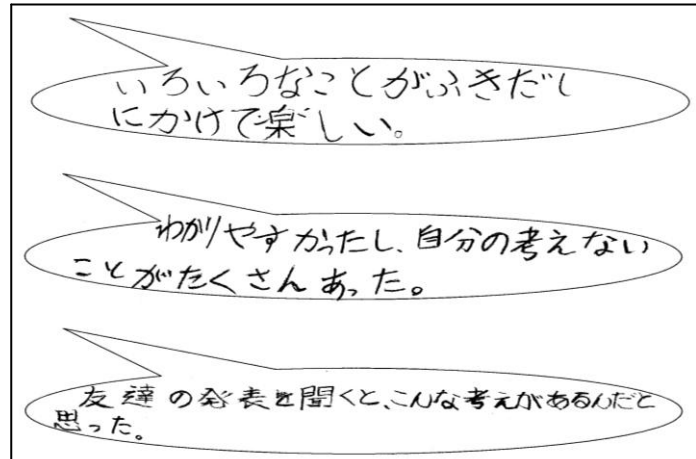 いろいろなことがふきだし
にかけて楽しい。
わかりやすかったし、自分の考えない
ことがたくさんあった。
友達の発表を聞くと、こんな考えがあるんだと
思った。